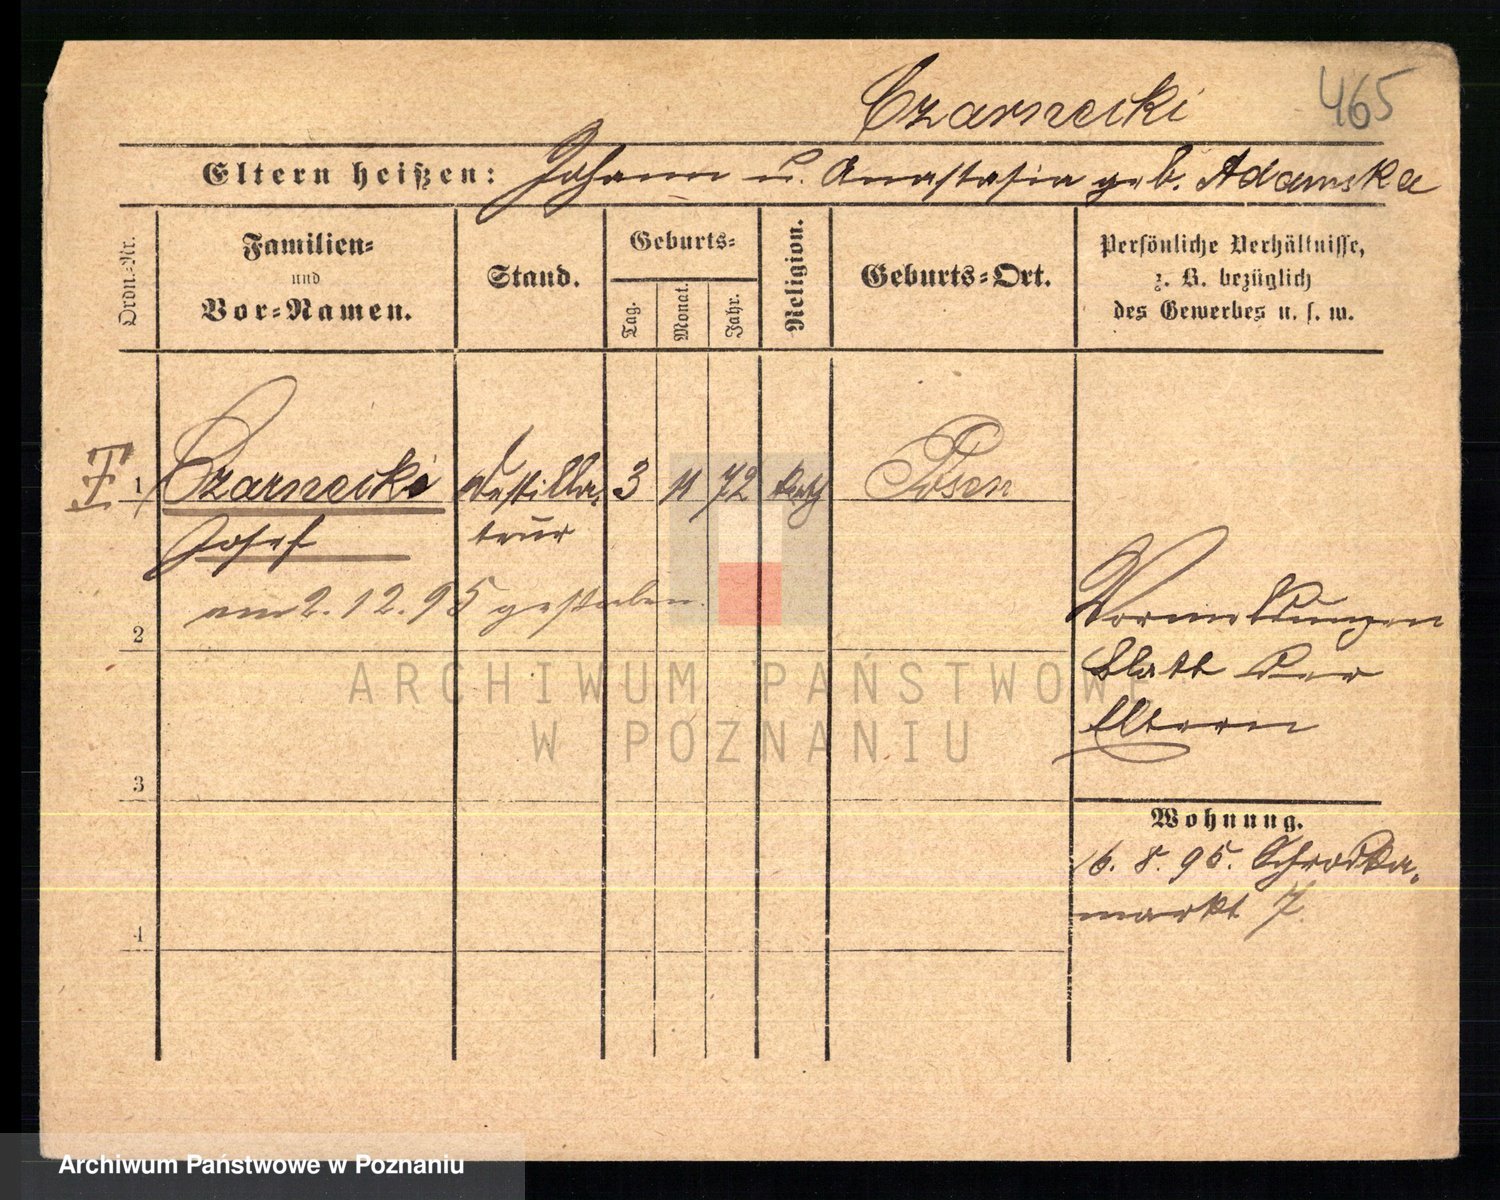 Czarnecki 465
Eltern heißen: Johann u. Anastasia geb. Adamska
Ordn.-Nr.
Familien-
und
Vor-Namen.
Stand.
Geburts-
Tag.
Monat.
Jahr.
Religion.
Geburts-Ort.
Persönliche Verhältnisse,
z. B. bezüglich
des Gewerbes u. s. w.
1 Czarnecki Destilla- 3 11 72 kath Posen
Josef teur
am 2.12.95 gestorben
2
Vormeldungen
blatt der
Eltern
3
Wohnung.
6. 8. 95. Schrodka-
markt 7
4
ARCHIWUM PAŃSTWOWE
W POZNANIU
Archiwum Państwowe w Poznaniu